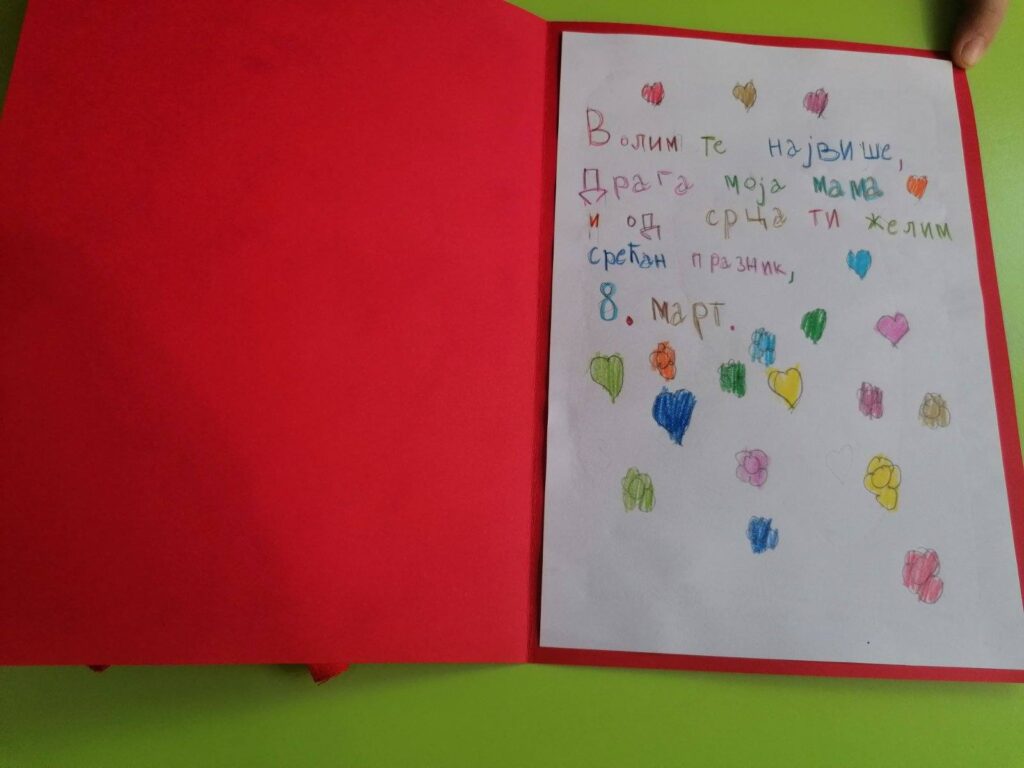 Волим те највише,
Драга моја мама
и од срца ти желим
срећан празник,
8. март.